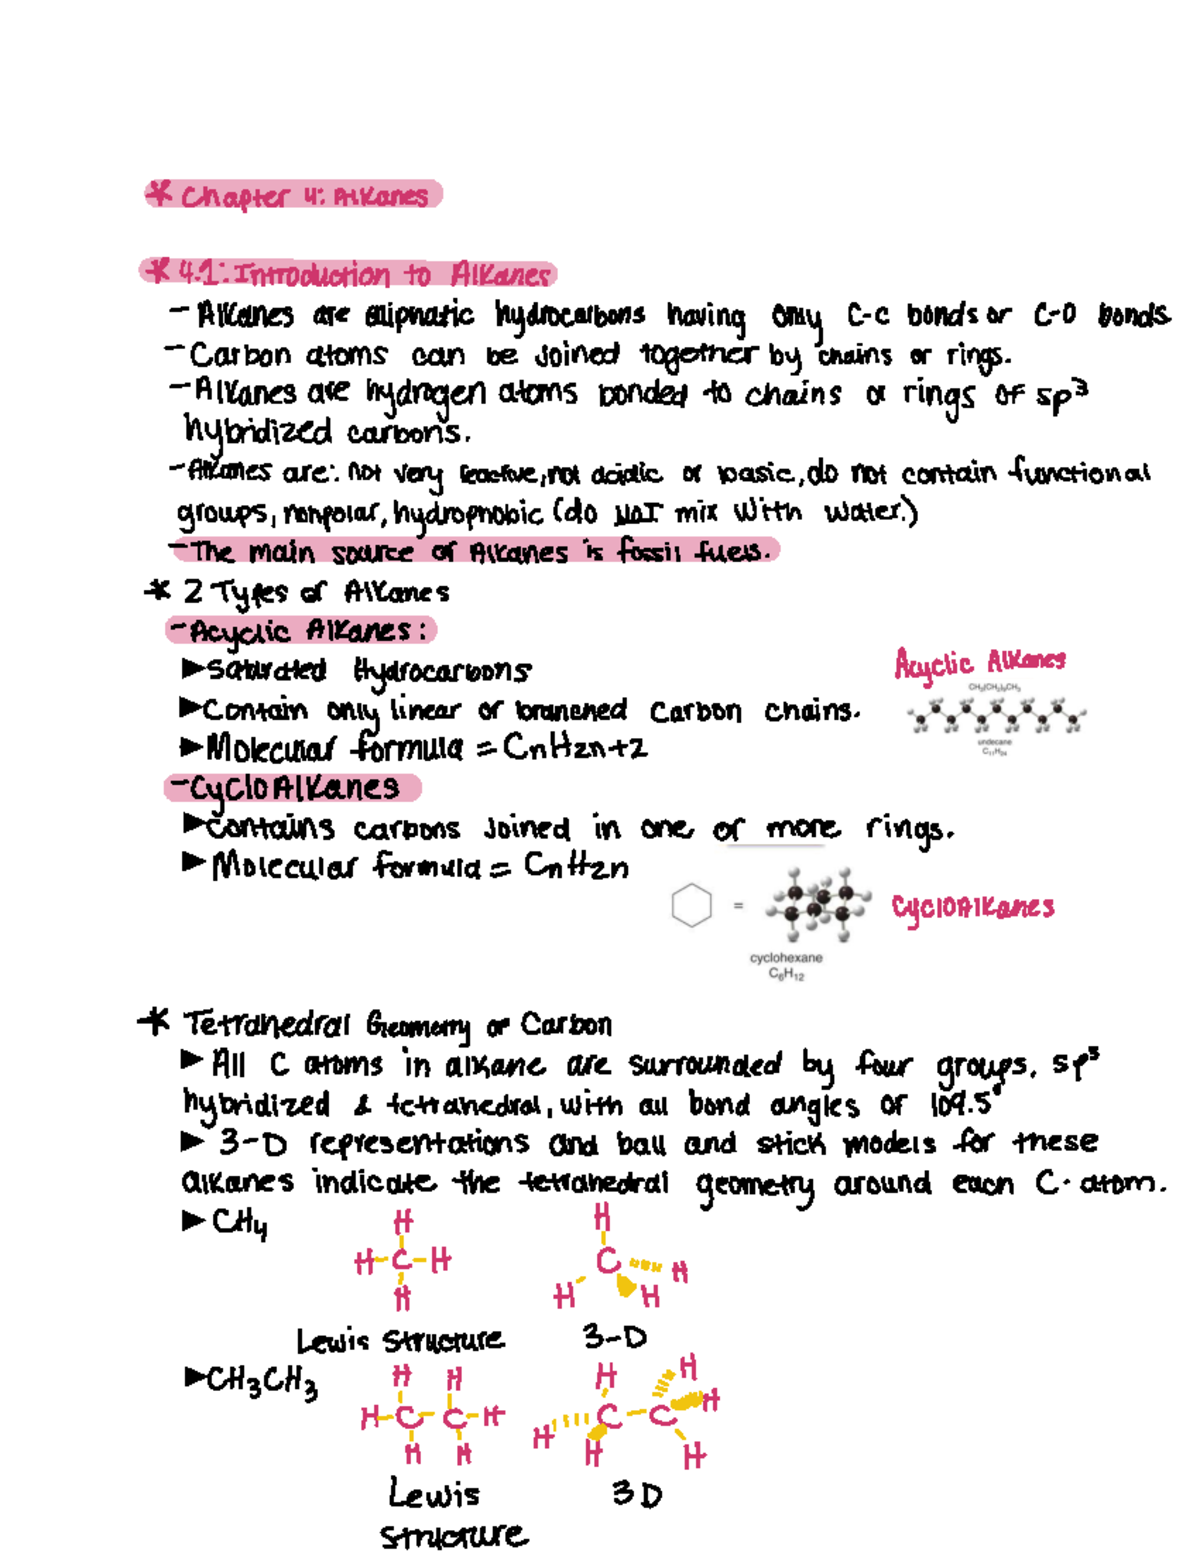 * Chapter 4: Alkanes
* 4.1: Introduction to Alkanes
- Alkanes are aliphatic hydrocarbons having only C-C bonds or C-O bonds
- Carbon atoms can be joined together by chains or rings.
- Alkanes are hydrogen atoms bonded to chains or rings of sp³
hybridized carbons.
- Alkanes are: not very reactive, not acidic or basic, do not contain functional
groups, nonpolar, hydrophobic (do NOT mix with water.)
- The main source of Alkanes is fossil fuels.
* 2 Types of Alkanes
- Acyclic Alkanes:
▶ Saturated Hydrocarbons
Acyclic Alkanes
CH₃(CH₂)₉CH₃
▶ Contain only linear or branched carbon chains.
▶ Molecular formula = CnH2n+2
undecane
C₁₁H₂₄
- CycloAlkanes
▶ contains carbons joined in one or more rings.
▶ Molecular formula = CnH2n
=
CycloAlkanes
cyclohexane
C₆H₁₂
* Tetrahedral Geometry of Carbon
▶ All C atoms in alkane are surrounded by four groups, sp³
hybridized & tetrahedral, with all bond angles of 109.5°
▶ 3-D representations and ball and stick models for these
alkanes indicate the tetrahedral geometry around each C-atom.
▶ CH₄
H H
H-C-H C H
H H H
Lewis Structure 3-D
▶ CH₃CH₃
H H H H
H-C-C-H C-C H
H H H H H
Lewis 3D
Structure